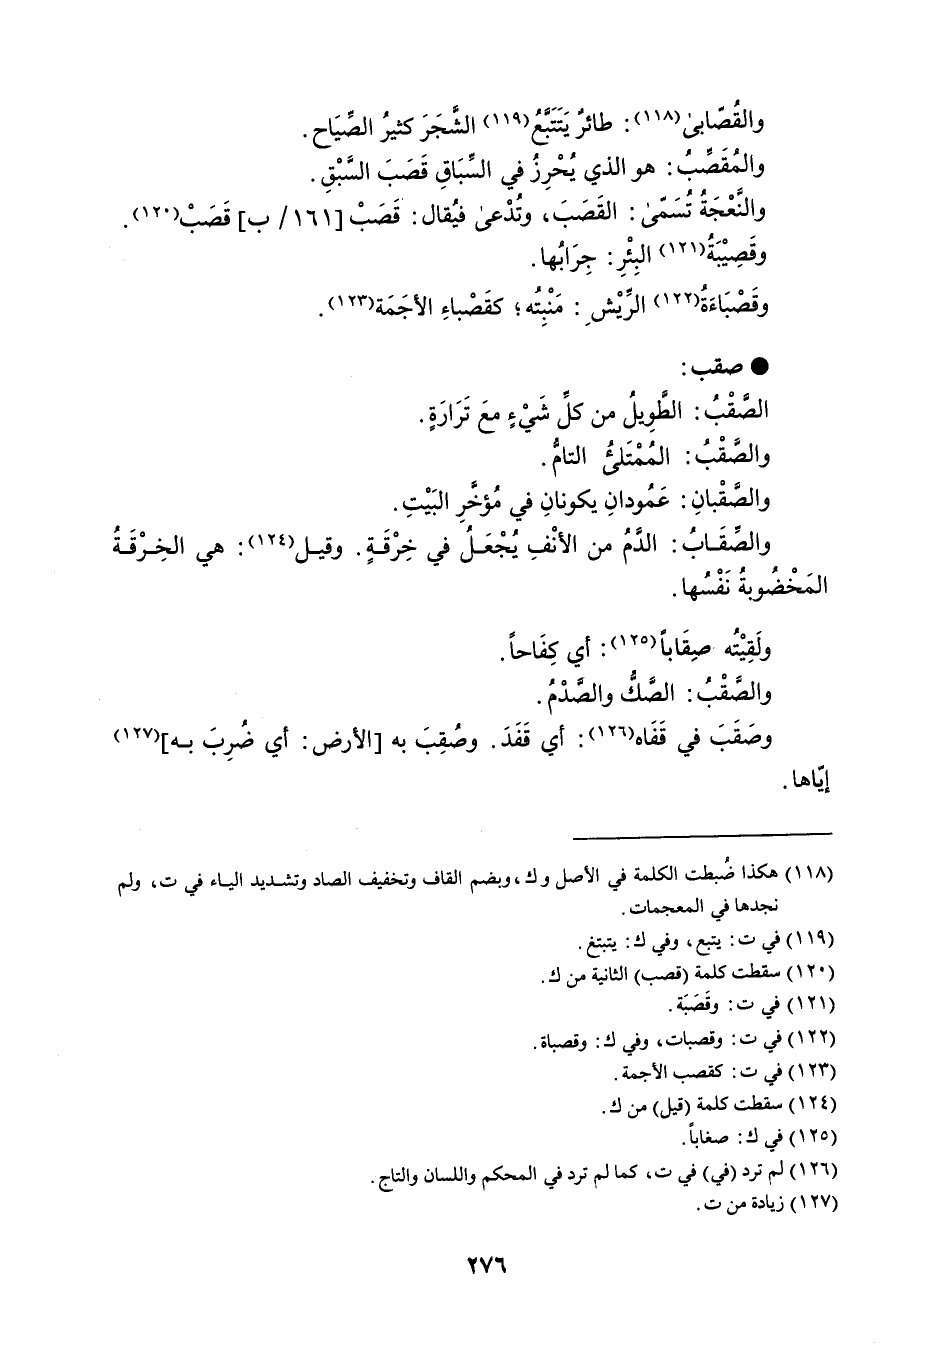 والقُصّابىٰ(١١٨): طائرٌ يَتَتَبَّعُ(١١٩) الشَّجَرَ كثيرُ الصِّيَاح.
والمُقَصِّبُ: هو الذي يُحْرِزُ في السِّبَاقِ قَصَبَ السَّبْقِ.
والنَّعْجَةُ تُسَمّىٰ: القَصَبَ، وتُدْعىٰ فيُقال: قَصَبْ [١٦١/ ب] قَصَبْ(١٢٠).
وقَصِيْبَةُ(١٢١) البِئْرِ: جِرَابُها.
وقَصْبَاءَةُ(١٢٢) الرِّيْشِ: مَنْبِتُه؛ كقَصْباءِ الأجَمَة(١٢٣).
● صقب:
الصَّقْبُ: الطَّوِيلُ من كلِّ شَيْءٍ معَ تَرَارَةٍ.
والصَّقْبُ: المُمْتَلئُ التامُّ.
والصَّقْبانِ: عَمُودانِ يكونانِ في مُؤخَّرِ البَيْتِ.
والصِّقَـابُ: الدَّمُ من الأنْفِ يُجْعَـلُ في خِرْقَـةٍ. وقيـل(١٢٤): هي الخِـرْقَـةُ
المَخْضُوبةُ نَفْسُها.
ولَقِيْتُه صِقَاباً(١٢٥): أي كِفَاحاً.
والصَّقْبُ: الصَّكُّ والصَّدْمُ.
وصَقَبَ في قَفَاه(١٢٦): أي قَفَدَ. وصُقِبَ به [الأرض: أي ضُرِبَ بـه](١٢٧)
إيّاها.
(١١٨) هكذا ضُبطت الكلمة في الأصل و ك، وبضم القاف وتخفيف الصاد وتشديد الياء في ت، ولم
نجدها في المعجمات.
(١١٩) في ت: يتبع، وفي ك: يتبتغ.
(١٢٠) سقطت كلمة (قصب) الثانية من ك.
(١٢١) في ت: وقَصَبَة.
(١٢٢) في ت: وقصبات، وفي ك: وقصباة.
(١٢٣) في ت: كقصب الأجمة.
(١٢٤) سقطت كلمة (قيل) من ك.
(١٢٥) في ك: صغاباً.
(١٢٦) لم ترد (في) في ت، كما لم ترد في المحكم واللسان والتاج.
(١٢٧) زيادة من ت.
٢٧٦